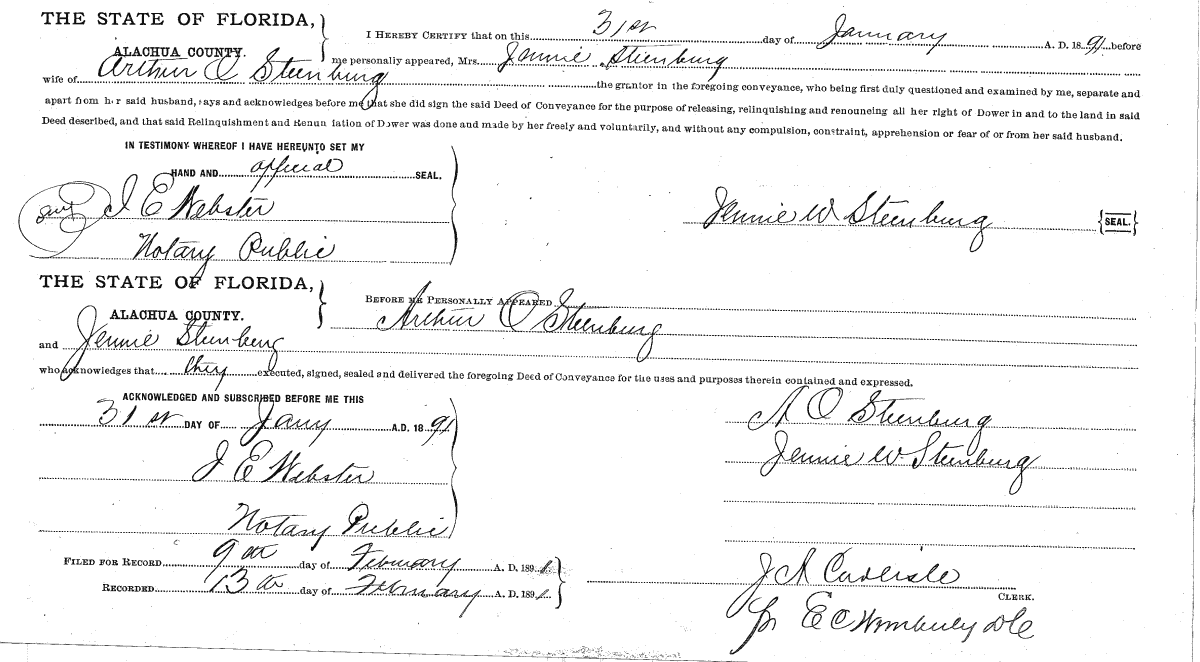 THE STATE OF FLORIDA,
ALACHUA COUNTY.
I HEREBY CERTIFY that on this 31st day of January A. D. 1891 before
me personally appeared, Mrs. Jennie Steenburg
wife of Arthur O Steenburg the grantor in the foregoing conveyance, who being first duly questioned and examined by me, separate and
apart from her said husband, says and acknowledges before me that she did sign the said Deed of Conveyance for the purpose of releasing, relinquishing and renouncing all her right of Dower in and to the land in said
Deed described, and that said Relinquishment and Renun iation of Dower was done and made by her freely and voluntarily, and without any compulsion, constraint, apprehension or fear of or from her said husband.
IN TESTIMONY WHEREOF I HAVE HEREUNTO SET MY
HAND AND official SEAL.
J E Webster
Notary Public
Jennie W Steenburg {SEAL.}
THE STATE OF FLORIDA,
ALACHUA COUNTY.
BEFORE ME PERSONALLY APPEARED
Arthur O Steenburg
and Jennie Steenburg
who acknowledges that they executed, signed, sealed and delivered the foregoing Deed of Conveyance for the uses and purposes therein contained and expressed.
ACKNOWLEDGED AND SUBSCRIBED BEFORE ME THIS
31st DAY OF Jany A.D. 1891
J E Webster
Notary Public
A O Steenburg
Jennie W. Steenburg
FILED FOR RECORD 9th day of February A. D. 1891
RECORDED 13th day of February A. D. 1891
J A Carlisle
CLERK.
E C Wimberly DC